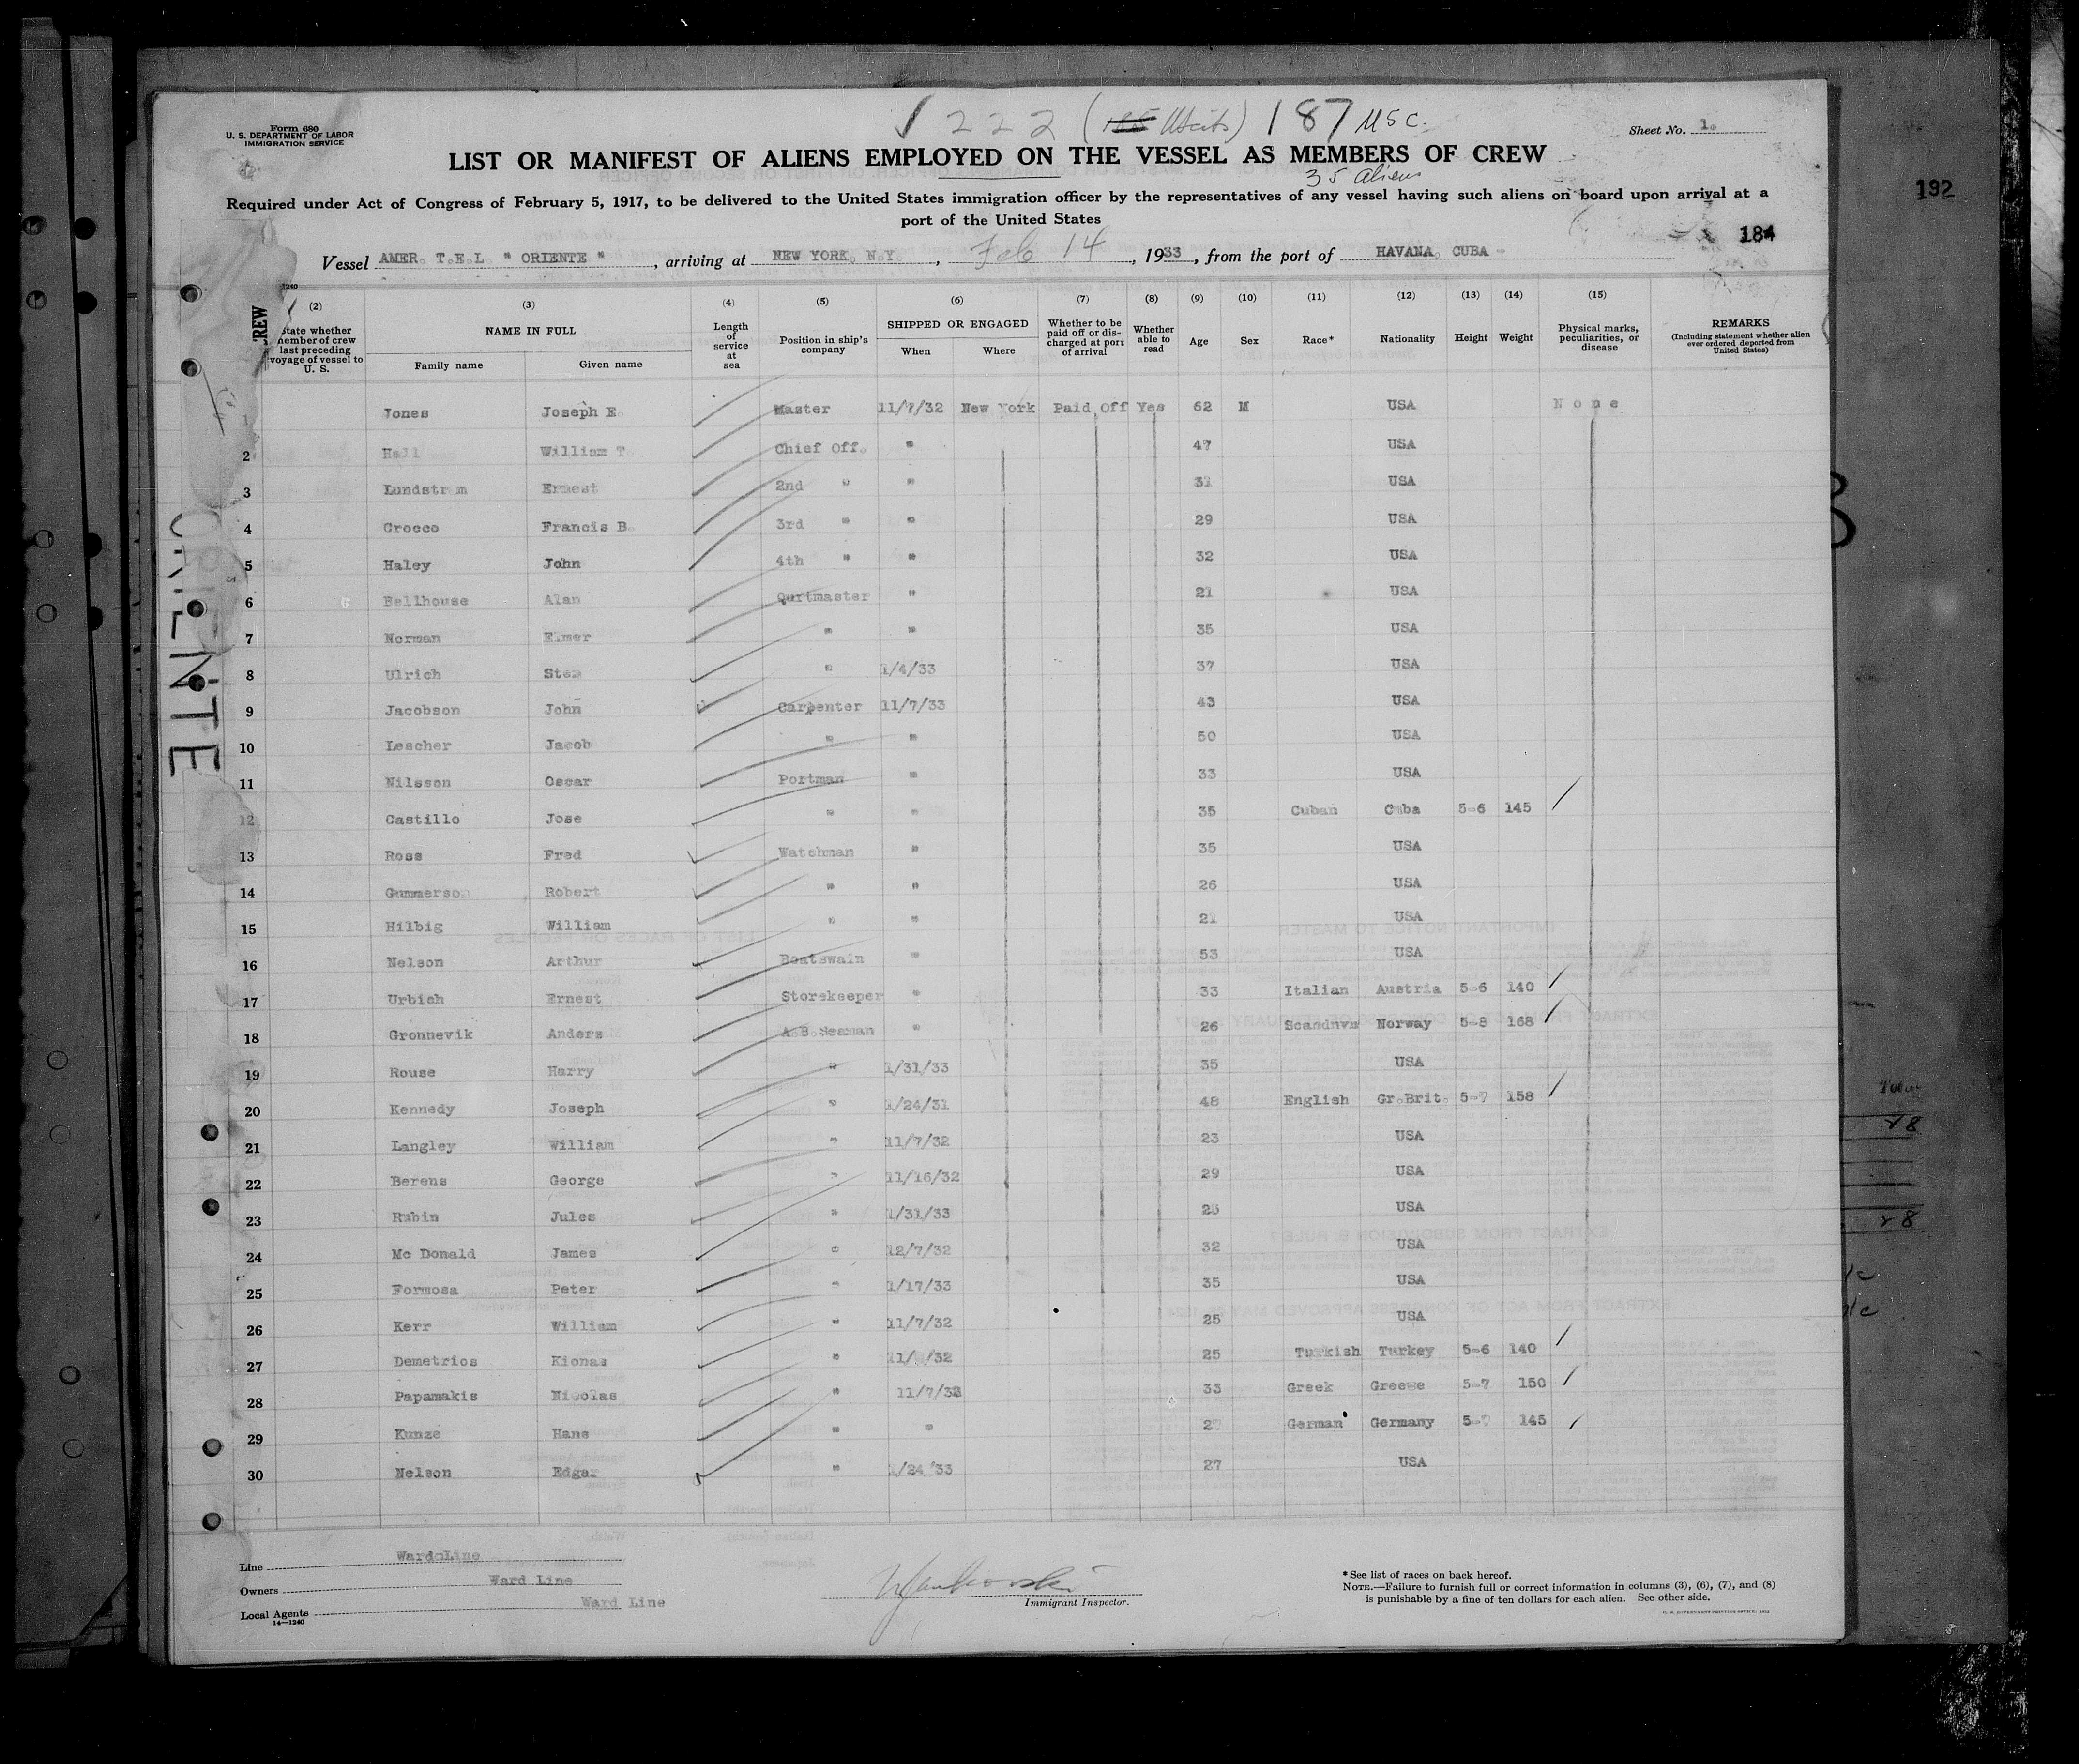 Form 680
U. S. DEPARTMENT OF LABOR
IMMIGRATION SERVICE
222 ( ) 187 USC.
Sheet No. 1.
LIST OR MANIFEST OF ALIENS EMPLOYED ON THE VESSEL AS MEMBERS OF CREW
35 aliens
Required under Act of Congress of February 5, 1917, to be delivered to the United States immigration officer by the representatives of any vessel having such aliens on board upon arrival at a
port of the United States
192
184
Vessel AMER. T.E.L " ORIENTE ", arriving at NEW YORK, N.Y., Feb 14, 1933, from the port of HAVANA, CUBA
1240
CREW (2) State whether member of crew last preceding voyage of vessel to U. S. (3) NAME IN FULL Family name Given name (4) Length of service at sea (5) Position in ship's company (6) SHIPPED OR ENGAGED When Where (7) Whether to be paid off or discharged at port of arrival (8) Whether able to read (9) Age (10) Sex (11) Race* (12) Nationality (13) Height (14) Weight (15) Physical marks, peculiarities, or disease REMARKS (Including statement whether alien ever ordered deported from United States)
1 Jones Joseph E. Master 11/7/32 New York Paid Off Yes 62 M USA None
2 Hall William T. Chief Off. " 47 USA
3 Lundstrom Ernest 2nd " " 31 USA
4 Crocco Francis B. 3rd " " 29 USA
5 Haley John 4th " " 32 USA
6 Bellhouse Alan Qurtmaster " 21 USA
7 Norman Elmer " " 35 USA
8 Ulrich Stan " 1/4/33 37 USA
9 Jacobson John Carpenter 11/7/33 43 USA
10 Lescher Jacob " " 50 USA
11 Nilsson Oscar Portman " 33 USA
12 Castillo Jose " " 35 Cuban Cuba 5-6 145
13 Ross Fred Watchman " 35 USA
14 Gummerson Robert " " 26 USA
15 Hilbig William " " 21 USA
16 Nelson Arthur Boatswain " 53 USA
17 Urbich Ernest Storekeeper " 33 Italian Austria 5-6 140
18 Gronnevik Anders A.B. Seaman " 26 Scandnvn Norway 5-8 168
19 Rouse Harry " 1/31/33 35 USA
20 Kennedy Joseph " 1/24/31 48 English Gr.Brit. 5-7 158
21 Langley William " 11/7/32 23 USA
22 Berens George " 11/16/32 29 USA
23 Rubin Jules " 1/31/33 USA
24 Mc Donald James " 12/7/32 32 USA
25 Formosa Peter " 1/17/33 35 USA
26 Kerr William " 11/7/32 25 USA
27 Demetrios Kionas " 25 Turkish Turkey 5-6 140
28 Papamakis Nicolas " 33 Greek Greece 5-7 150
29 Kunze Hans " " German Germany 5-7 145
30 Nelson Edgar " 1/24/33 27 USA
ORIENTE
Line Ward Line
Owners Ward Line
Local Agents Ward Line
14—1240
Immigrant Inspector.
*See list of races on back hereof.
NOTE.—Failure to furnish full or correct information in columns (3), (6), (7), and (8)
is punishable by a fine of ten dollars for each alien. See other side.